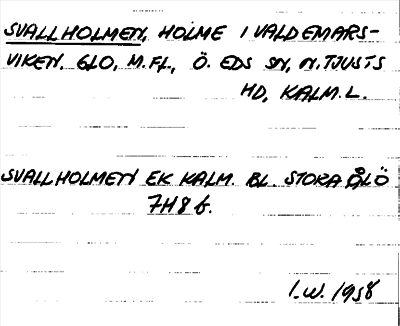 SVALLHOLMEN, HOLME I VALDEMARS-
VIKEN, GLO, M.FL., Ö. EDS SN, N. TJUSTS
HD, KALM. L.
SVALLHOLMEN EK KALM. BL. STORA ÅLÖ
7H8f.
I.W. 1958